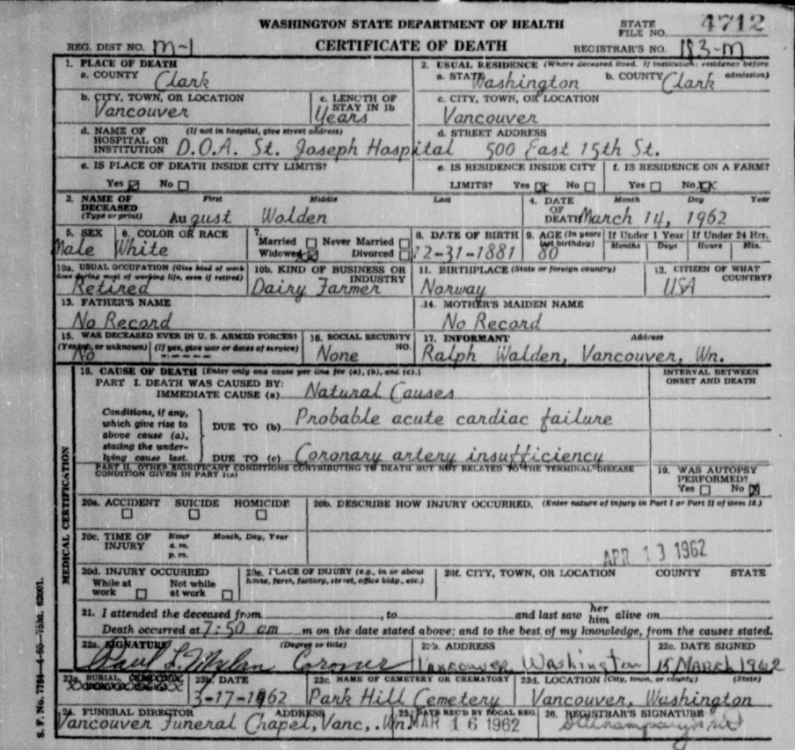 WASHINGTON STATE DEPARTMENT OF HEALTH
STATE FILE NO. 4712
REG. DIST NO. M-1 CERTIFICATE OF DEATH REGISTRAR'S NO. 183-M
1. PLACE OF DEATH
a. COUNTY Clark
2. USUAL RESIDENCE (Where deceased lived. If institution: residence before admission)
a. STATE Washington b. COUNTY Clark
b. CITY, TOWN, OR LOCATION
Vancouver
c. LENGTH OF STAY IN 1b
Years
c. CITY, TOWN, OR LOCATION
Vancouver
d. NAME OF HOSPITAL OR INSTITUTION (If not in hospital, give street address)
D.O.A. St. Joseph Hospital
d. STREET ADDRESS
500 East 15th St.
e. IS PLACE OF DEATH INSIDE CITY LIMITS?
Yes ☒ No ☐
e. IS RESIDENCE INSIDE CITY
LIMITS? Yes ☒ No ☐
f. IS RESIDENCE ON A FARM?
Yes ☐ No ☒
3. NAME OF DECEASED (Type or print) First Middle Last
August Walden
4. DATE OF DEATH Month Day Year
March 14, 1962
5. SEX
Male
6. COLOR OR RACE
White
7.
Married ☐ Never Married ☐
Widowed ☒ Divorced ☐
8. DATE OF BIRTH
12-31-1881
9. AGE (In years last birthday)
80
If Under 1 Year
Months Days
If Under 24 Hrs.
Hours Min.
10a. USUAL OCCUPATION (Give kind of work done during most of working life, even if retired)
Retired
10b. KIND OF BUSINESS OR INDUSTRY
Dairy Farmer
11. BIRTHPLACE (State or foreign country)
Norway
12. CITIZEN OF WHAT COUNTRY?
USA
13. FATHER'S NAME
No Record
14. MOTHER'S MAIDEN NAME
No Record
15. WAS DECEASED EVER IN U. S. ARMED FORCES?
(Yes, no, or unknown) (If yes, give war or dates of service)
No -----
16. SOCIAL SECURITY NO.
None
17. INFORMANT Address
Ralph Walden, Vancouver, Wn.
MEDICAL CERTIFICATION
18. CAUSE OF DEATH (Enter only one cause per line for (a), (b), and (c).)
INTERVAL BETWEEN ONSET AND DEATH
PART I. DEATH WAS CAUSED BY:
IMMEDIATE CAUSE (a) Natural Causes
Conditions, if any, which give rise to above cause (a), stating the underlying cause last.
DUE TO (b) Probable acute cardiac failure
DUE TO (c) Coronary artery insufficiency
PART II. OTHER SIGNIFICANT CONDITIONS CONTRIBUTING TO DEATH BUT NOT RELATED TO THE TERMINAL DISEASE CONDITION GIVEN IN PART I(a)
19. WAS AUTOPSY PERFORMED?
Yes ☐ No ☒
20a. ACCIDENT SUICIDE HOMICIDE
☐ ☐ ☐
20b. DESCRIBE HOW INJURY OCCURRED. (Enter nature of injury in Part I or Part II of item 18.)
20c. TIME OF INJURY Hour Month, Day, Year
a. m.
p. m.
APR 13 1962
20d. INJURY OCCURRED
While at work ☐ Not while at work ☐
20e. PLACE OF INJURY (e.g., in or about home, farm, factory, street, office bldg., etc.)
20f. CITY, TOWN, OR LOCATION COUNTY STATE
21. I attended the deceased from , to and last saw her him alive on
Death occurred at 7:50 am m on the date stated above; and to the best of my knowledge, from the causes stated.
22a. SIGNATURE (Degree or title)
Coroner
22b. ADDRESS
Vancouver, Washington
22c. DATE SIGNED
15 March 1962
23a. BURIAL,
23b. DATE
3-17-1962
23c. NAME OF CEMETERY OR CREMATORY
Park Hill Cemetery
23d. LOCATION (City, town, or county) (State)
Vancouver, Washington
24. FUNERAL DIRECTOR ADDRESS
Vancouver Funeral Chapel, Vanc., Wn.
25. DATE REC'D BY LOCAL REG.
MAR 16 1962
26. REGISTRAR'S SIGNATURE